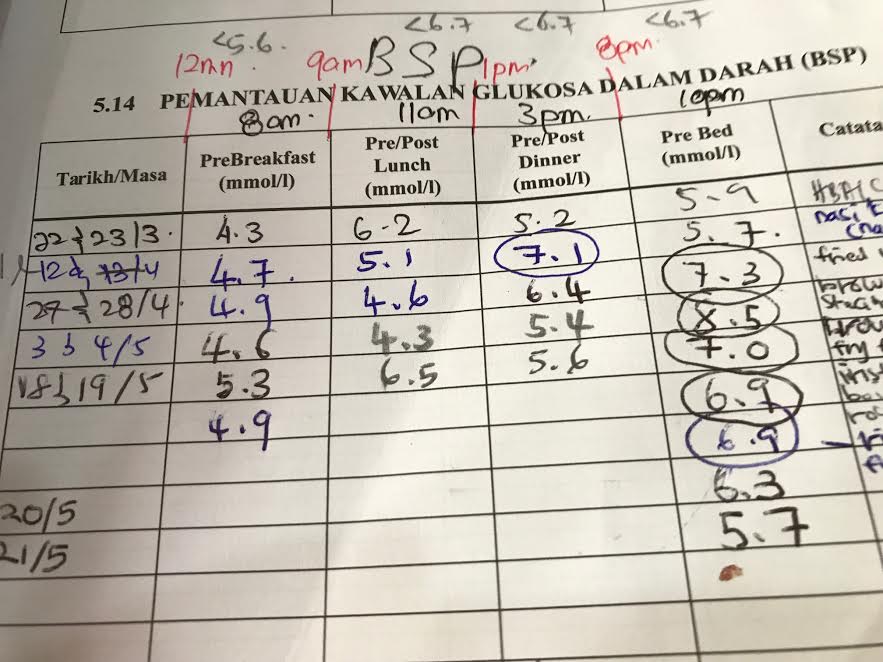 <5.6. <6.7 <6.7 <6.7
12mn 9am BSP 1pm 8pm.
5.14 PEMANTAUAN KAWALAN GLUKOSA DALAM DARAH (BSP)
8am. 11am 3pm. 10pm
Tarikh/Masa PreBreakfast (mmol/l) Pre/Post Lunch (mmol/l) Pre/Post Dinner (mmol/l) Pre Bed (mmol/l) Catata
5.9 HBA1C
22 & 23/3. 4.3 6.2 5.2 5.7. nasi
12 & 13/4 4.7. 5.1 7.1 7.3 fried
27 & 28/4. 4.9 4.6 6.4 8.5
3 & 4/5 4.6 4.3 5.4 7.0
18 & 19/5 5.3 6.5 5.6 6.9
4.9 6.9
6.3
20/5 5.7
21/5